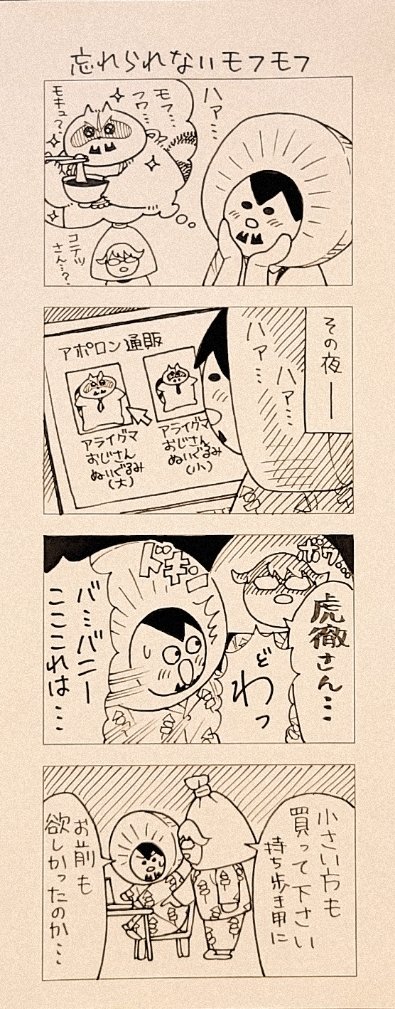 忘れられないモフモフ
ハァ…
モフ…
フワ…
モキュ?
コテツ
さん…?
その夜―
ハァ…
ハァ…
アポロン通販
アライグマ
おじさん
ぬいぐるみ
(大)
アライグマ
おじさん
ぬいぐるみ
(小)
ボウ…
虎徹さん…
どわっ
ドキン
バ…バニー
こここれは…
小さい方も
買って下さい
持ち歩き用に
お前も
欲しかったのか…